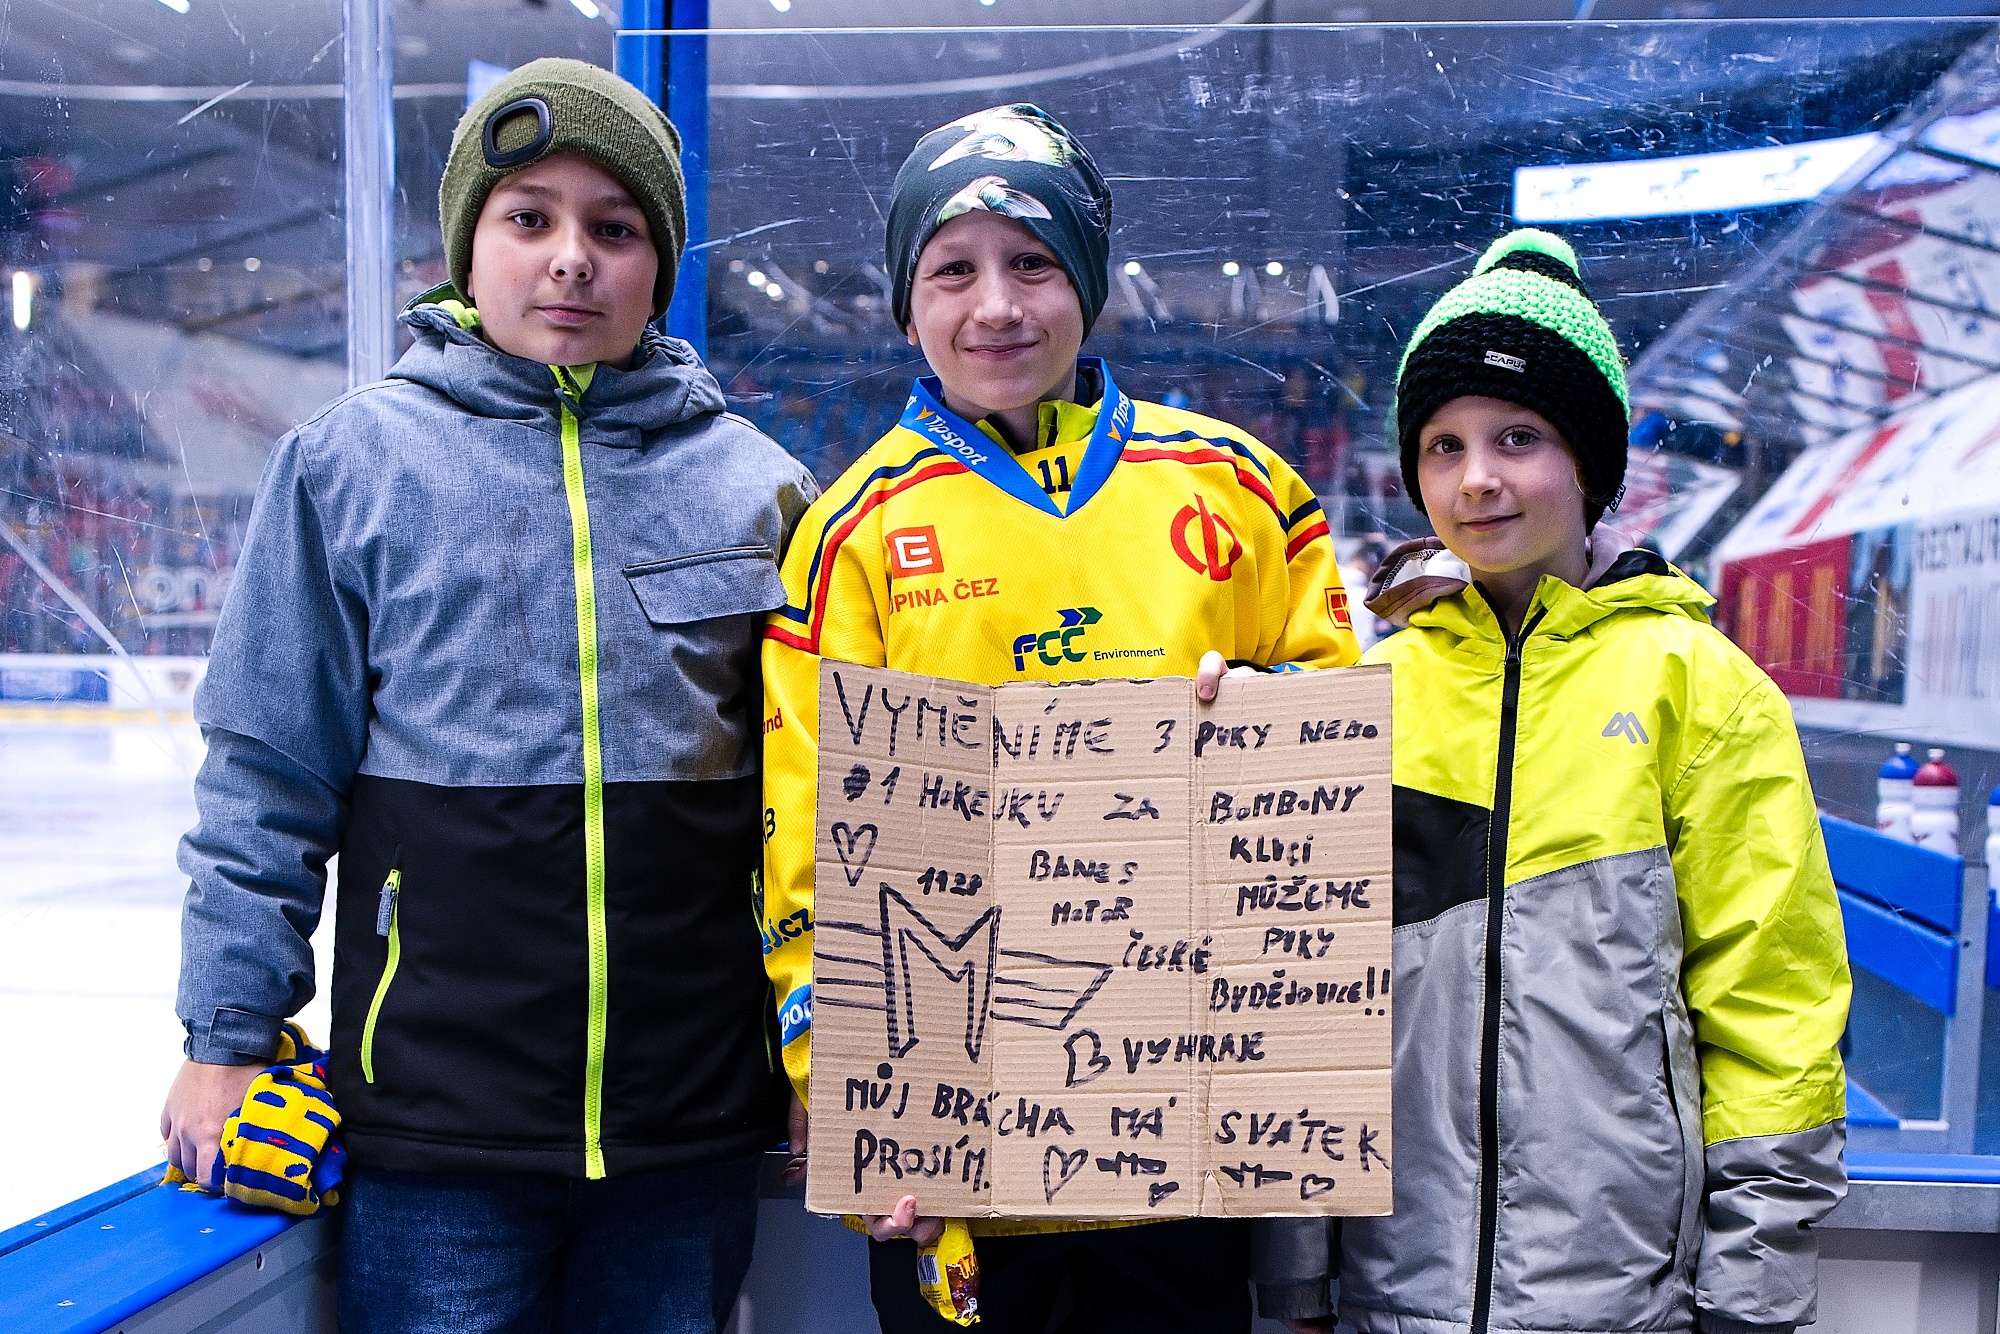 CAPU
CAPU
Tipsport
Tipsport
11
PINA ČEZ
FCC Environment
VYMĚNÍME 3 PUKY NEBO
#1 HOKEJKU ZA BOMBONY
1928
BANES
MOTOR
ČESKÉ
KLUCI
MŮŽEME
PUKY
BUDĚJOVICE!!
M
VYHRAJE
MŮJ BRÁCHA MÁ SVÁTEK
PROSÍM.
M
M